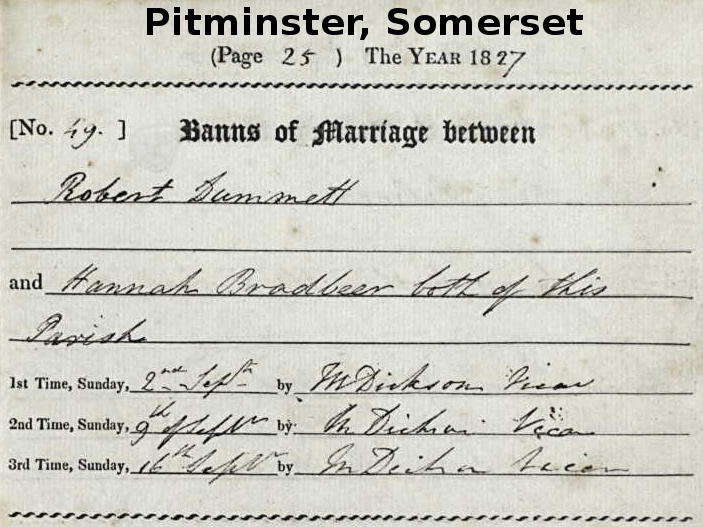 Pitminster, Somerset
(Page 25 ) The YEAR 1827
[No. 49. ] Banns of Marriage between
Robert Dummett
and Hannah Bradbeer both of this
Parish
1st Time, Sunday, 2nd Septr by M Dickson Vicar
2nd Time, Sunday, 9th of Septr by M Dickson Vicar
3rd Time, Sunday, 16th Septr by M Dickson Vicar